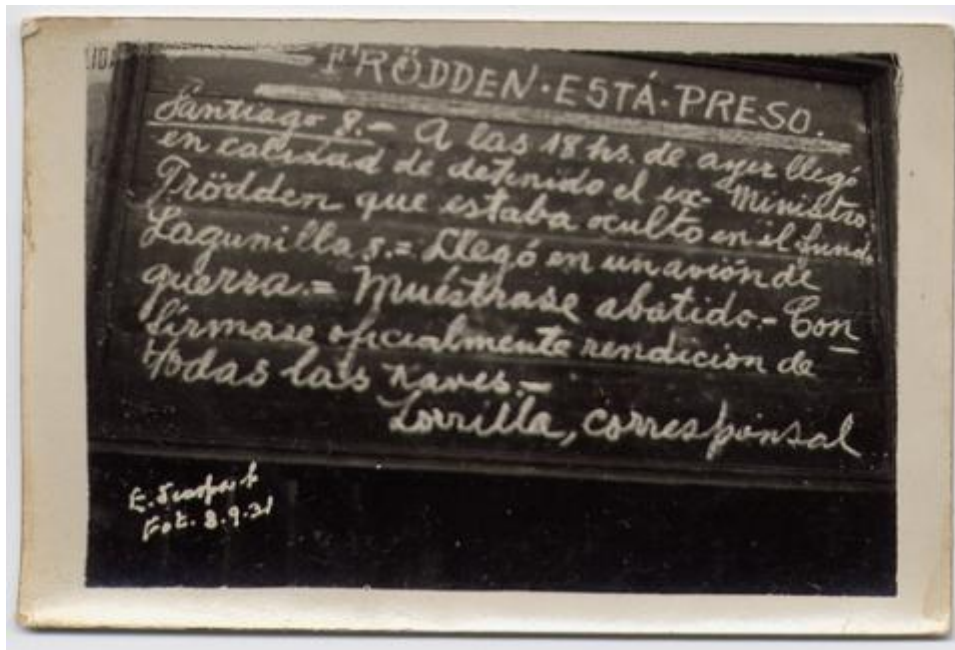 FRÖDDEN·ESTÁ·PRESO.
Santiago 8.- A las 18 hs. de ayer llegó
en calidad de detenido el ex- Ministro
Frödden que estaba oculto en el fundo
Lagunillas.= Llegó en un avión de
guerra.= Muéstrase abatido.- Con
fírmase oficialmente rendición de
todas las naves.-
Zorrilla, corresponsal
E.
Fot. 8.9.31